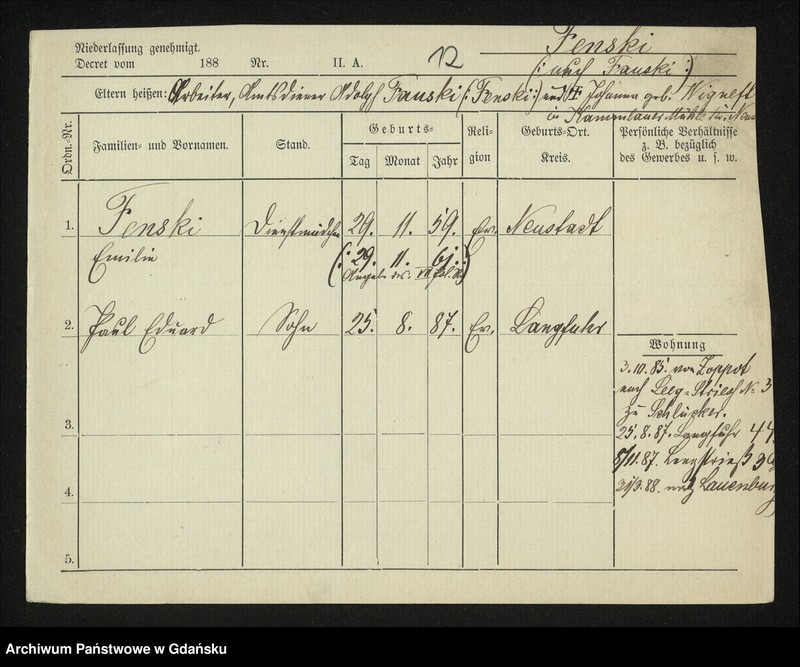 Niederlassung genehmigt.
Decret vom 188 Nr. II. A.
12
Fenski
(: auch Fauski :)
Eltern heißen: Arbeiter, Amtsdiener Adolf Fauski (: Fenski :) und Johanna geb.
in
Ordn.-Nr.
Familien- und Vornamen.
Stand.
Geburts-
Tag Monat Jahr
Religion
Geburts-Ort.
Kreis.
Persönliche Verhältnisse
z. B. bezüglich
des Gewerbes u. s. w.
1. Fenski Dienstmädchen 29. 11. 59. Ev. Neustadt
Emilie (: 29. 11. 61. :)
2. Paul Eduard Sohn 25. 8. 87. Ev. Langfuhr
3.
4.
5.
Wohnung
3.10.85. von Zoppot
nach Leeg-Striess No 3
zu Schlücker.
25.8.87. Langfuhr 44
8/11.87. Leegstrieß 39
31/3.88. nach Lauenburg
Archiwum Państwowe w Gdańsku